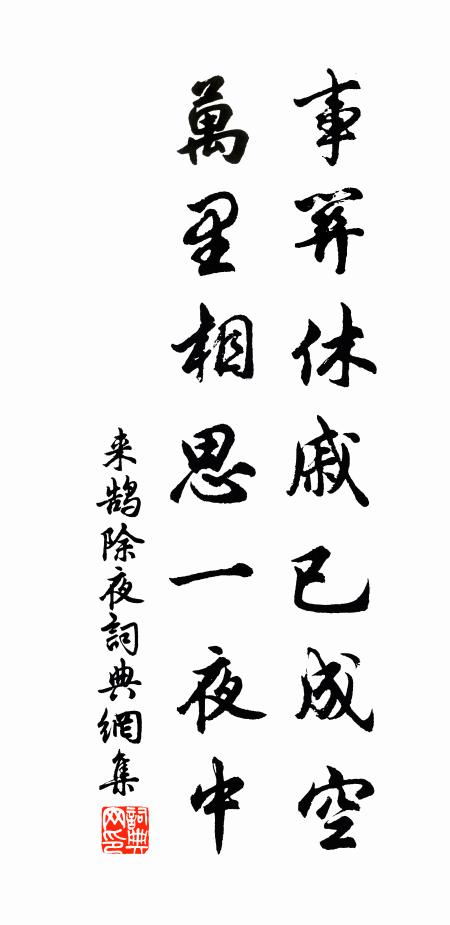 事關休戚已成空
萬里相思一夜中
来鵠除夜詞典網集
詞典
网印